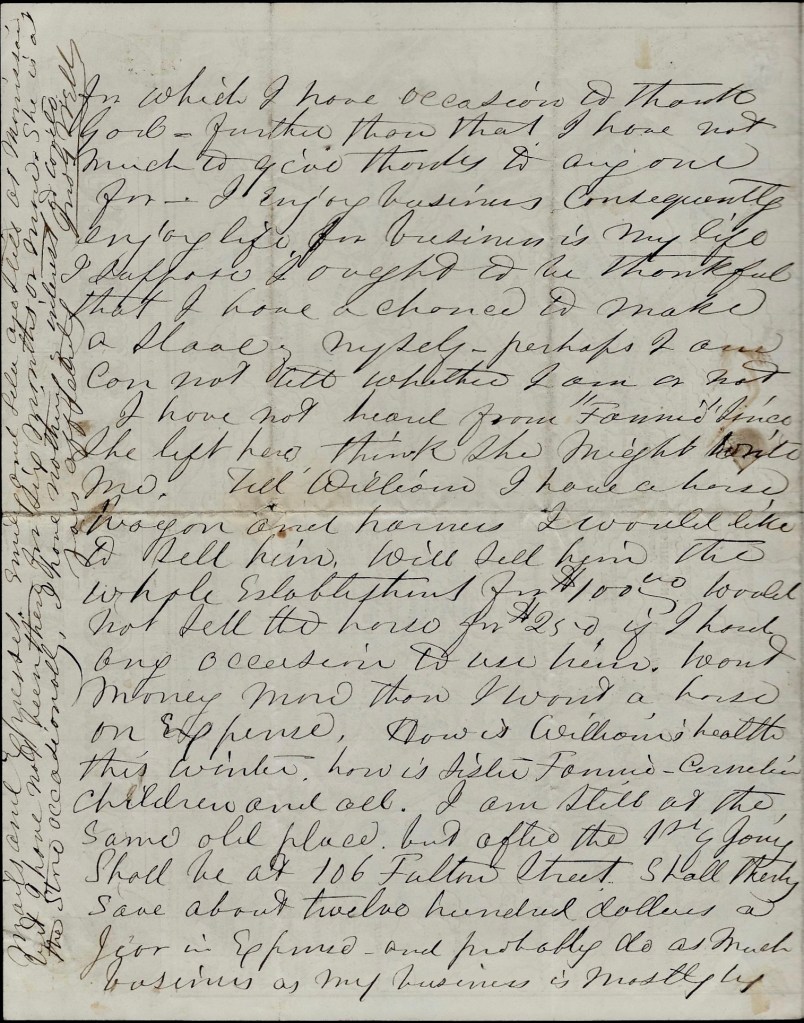 for which I have occasion to thank
God - further than that I have not
much to give thanks to any one
for - I Enjoy business Consequently
enjoy life for business is my life
I suppose I ought to be thankful
that I have a chance to make
a slave of myself - perhaps I am
Can not tell whether I am or not
I have not heard from "Fannie" since
she left here think she might write
me. Tell William I have a horse
wagon and harness I would like
to sell him. Will sell him the
whole Establishment for $100.00 Would
not sell the horse for $250 if I had
any occasion to use him. Want
money more than I want a horse
on Expense. How is William's health
this winter. how is Sister Fannie - Cornelia
children and all. I am still at the
same old place. but after the 1st of Jany
Shall be at 106 Fulton Street. Shall thereby
save about twelve hundred dollars a
year in Expense - and probably do as much
business as my business is mostly by
Mails and Expresses. Emily and Lila are still at
but I have not been there for six months or more. She is at
the Store occasionally. I have nothing of interest to
Yours affectionately